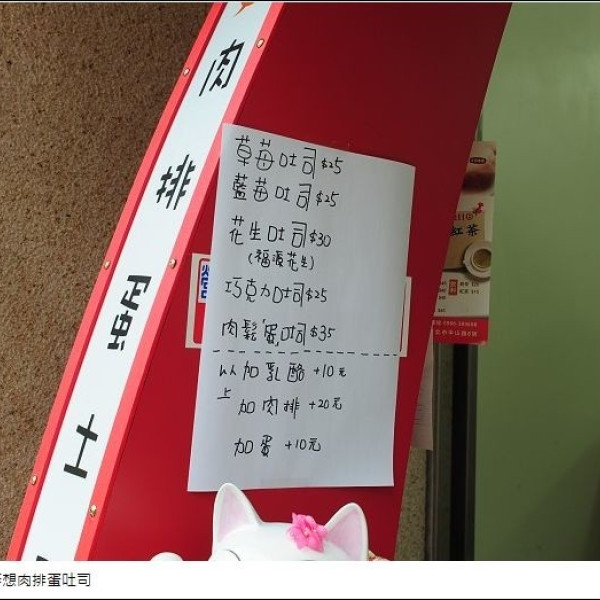 肉排蛋土
草莓吐司$25
藍莓吐司$25
花生吐司$30
(福源花生)
巧克力吐司$25
肉鬆蛋吐司$35
以上
加乳酪 +10元
加肉排 +20元
加蛋 +10元
紅茶
想肉排蛋吐司